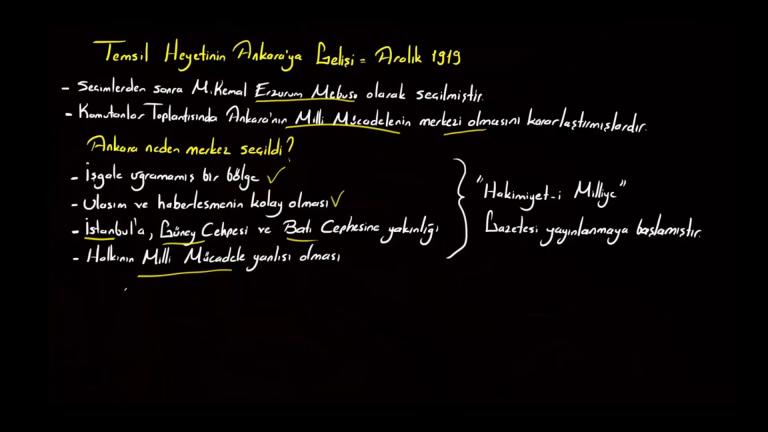 Temsil Heyetinin Ankara'ya Gelişi = Aralık 1919
- Seçimlerden sonra M.Kemal Erzurum Mebusu olarak seçilmiştir.
- Komutanlar Toplantısında Ankara'nın Milli Mücadelenin merkezi olmasını kararlaştırmışlardır.
Ankara neden merkez seçildi?
- İşgale uğramamış bir bölge ✓
- Ulaşım ve haberleşmenin kolay olması ✓
- İstanbul'a, Güney Cehpesi ve Batı Cephesine yakınlığı
- Halkının Milli Mücadele yanlısı olması
"Hakimiyet-i Milliye"
Gazetesi yayınlanmaya başlamıştır.